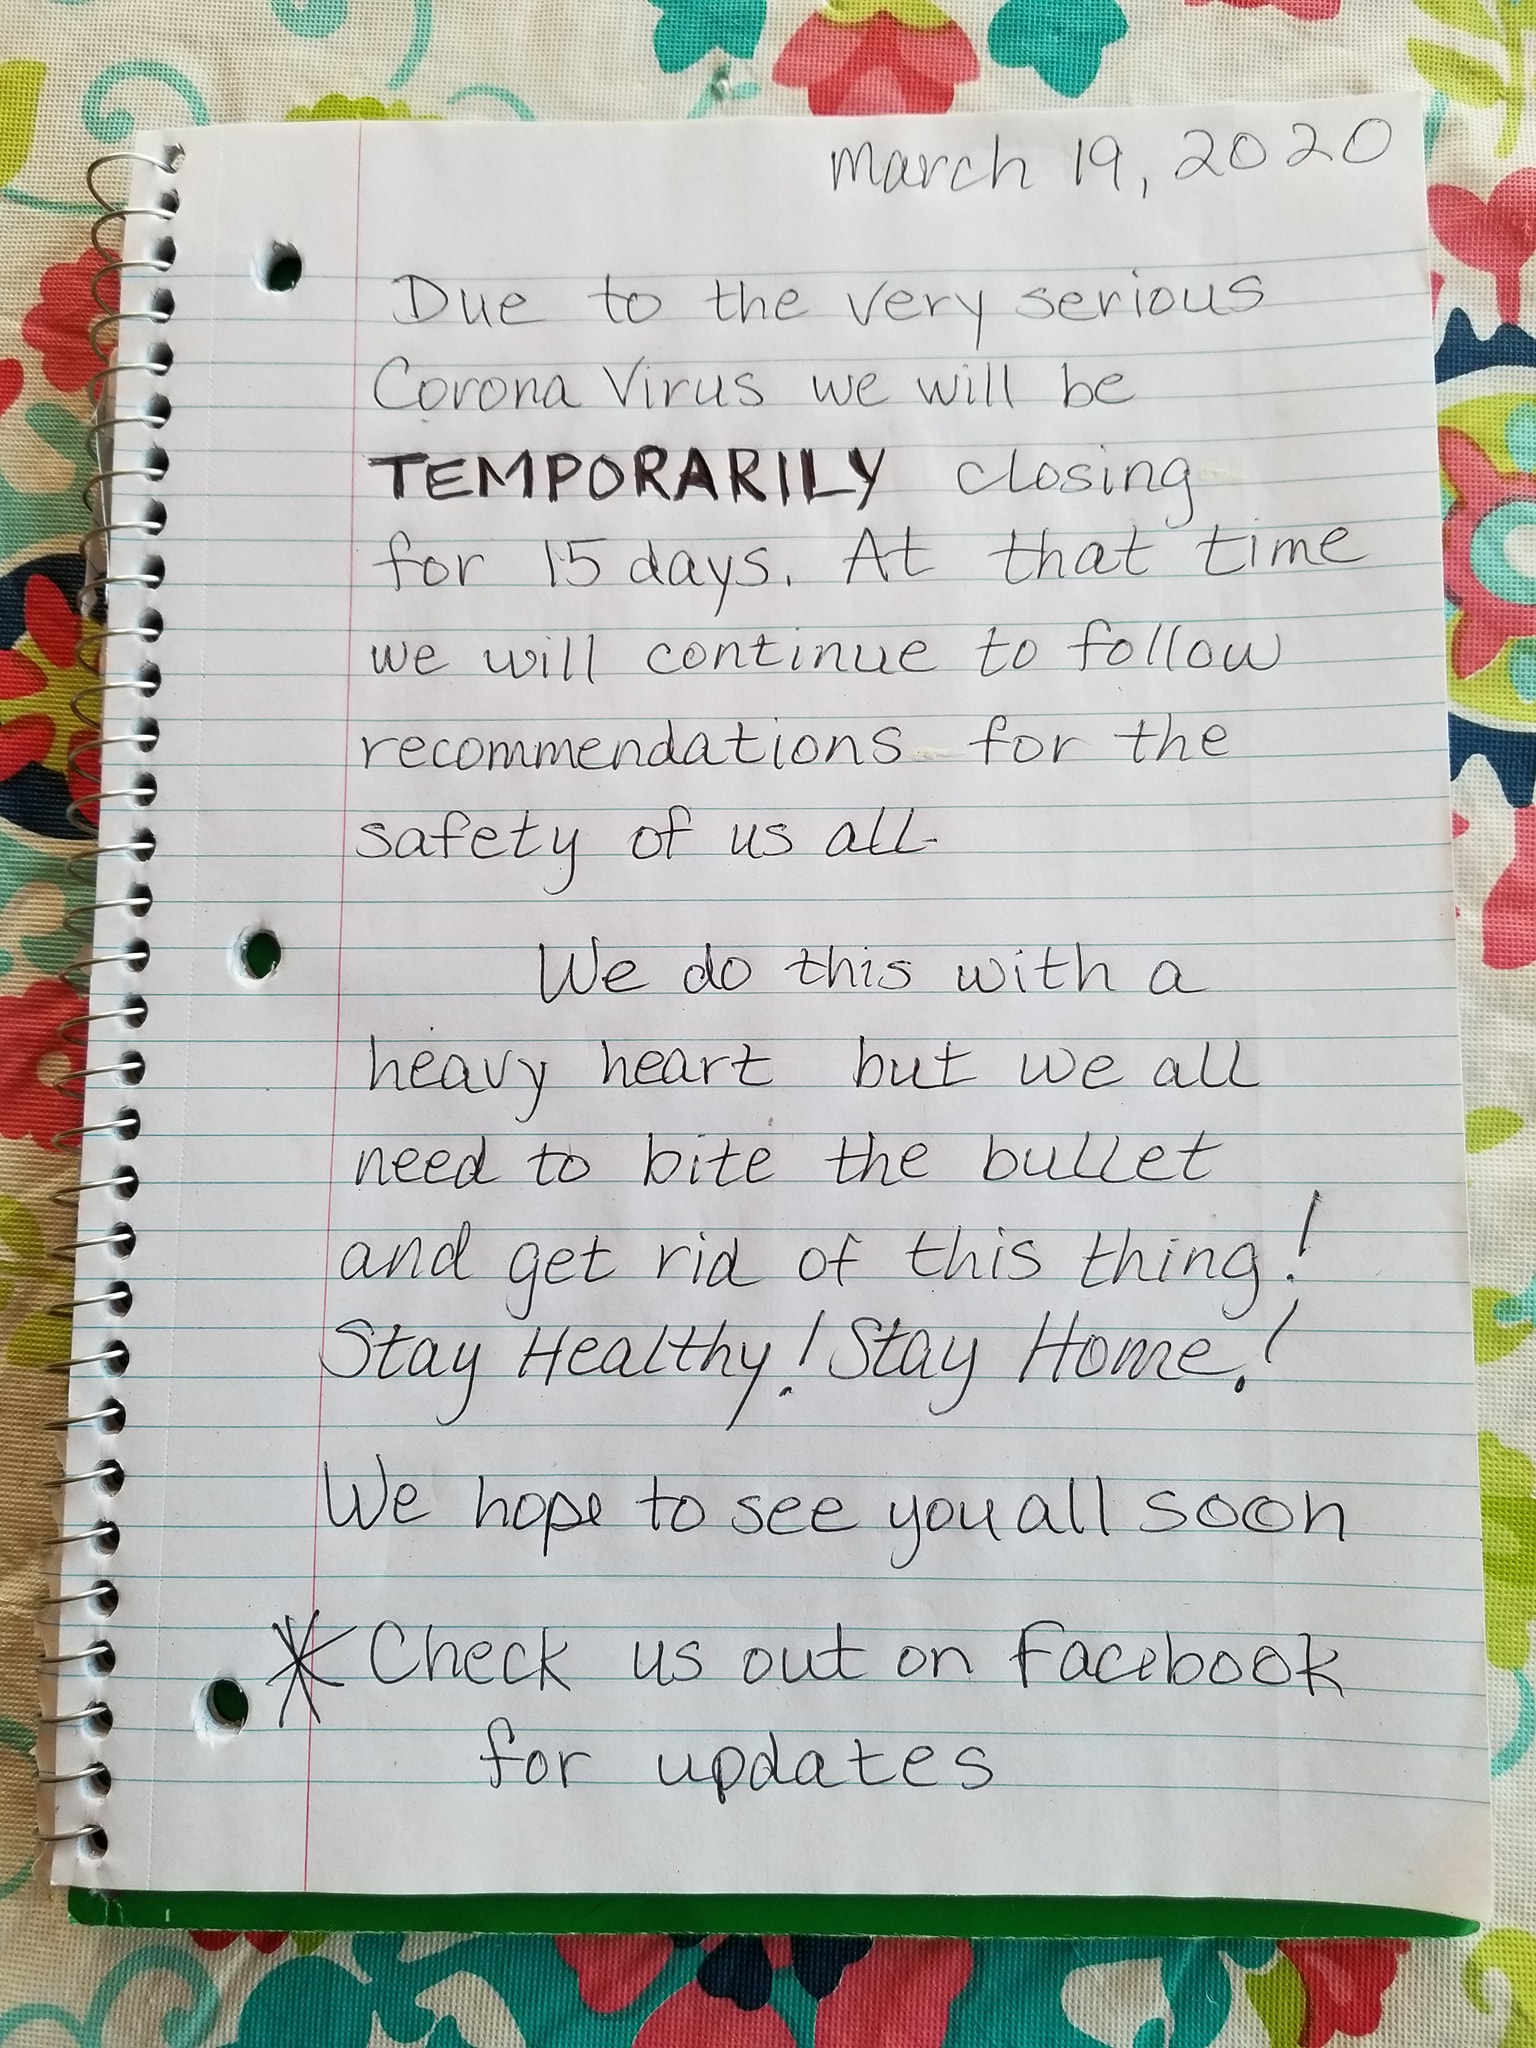 March 19, 2020
Due to the very serious
Corona Virus we will be
TEMPORARILY closing
for 15 days. At that time
we will continue to follow
recommendations for the
safety of us all.
We do this with a
heavy heart but we all
need to bite the bullet
and get rid of this thing!
Stay Healthy! Stay Home!
We hope to see you all soon
* Check us out on Facebook
for updates